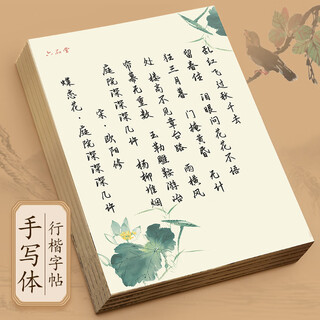 六品堂
蝶恋花·庭院深深深几许
宋·欧阳修
庭院深深深几许
杨柳堆烟
帘幕无重数
玉勒雕鞍游冶
处 楼高不见章台路
雨横风
任三月暮 门掩黄昏 无计
留春住 泪眼问花花不语
乱红飞过秋千去
手写体
行楷字帖